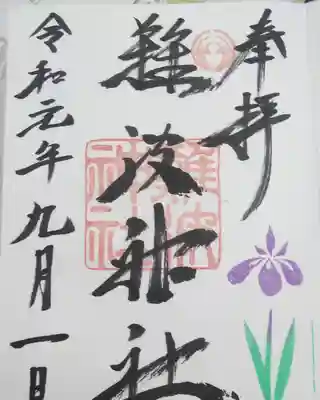 奉拝
難波神社
令和元年九月一日
難波神社